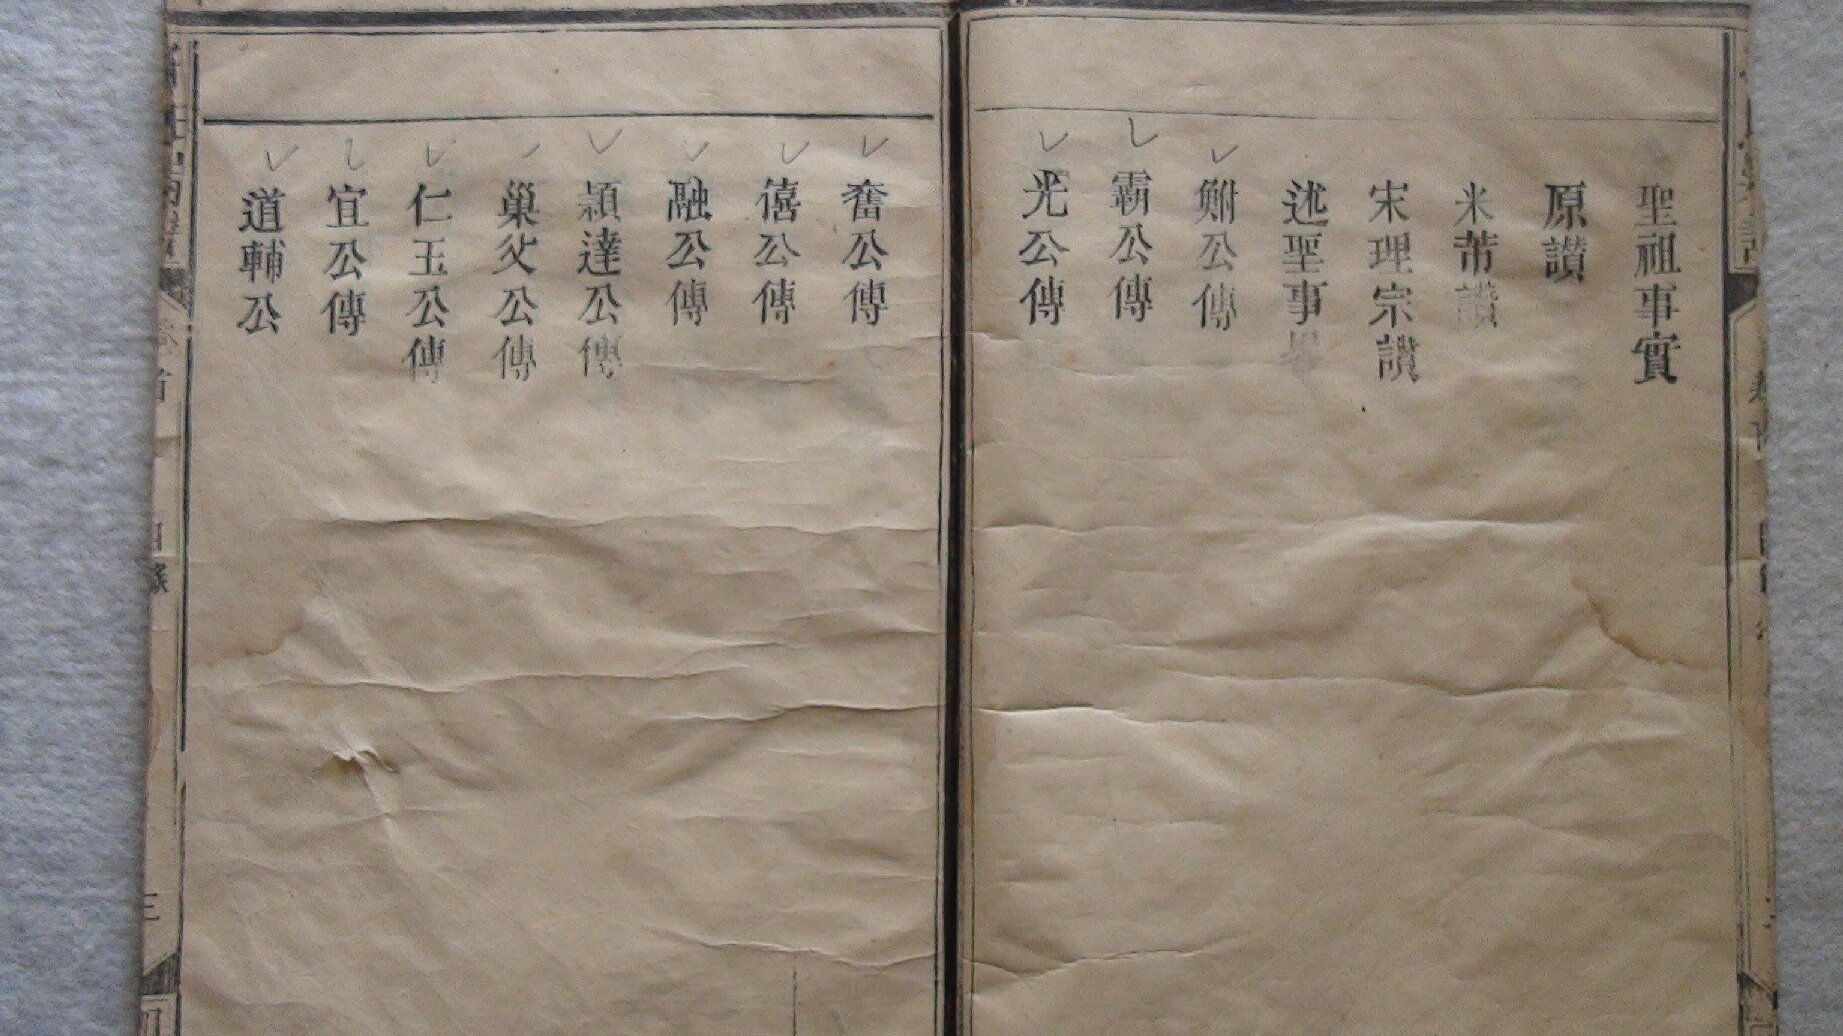 聖祖事實
原讃
米芾讃
宋理宗讃
述聖事畧
鮒公傳
霸公傳
光公傳
奮公傳
僖公傳
融公傳
頴達公傳
巢父公傳
仁玉公傳
宜公傳
道輔公
卷首
目錄
三